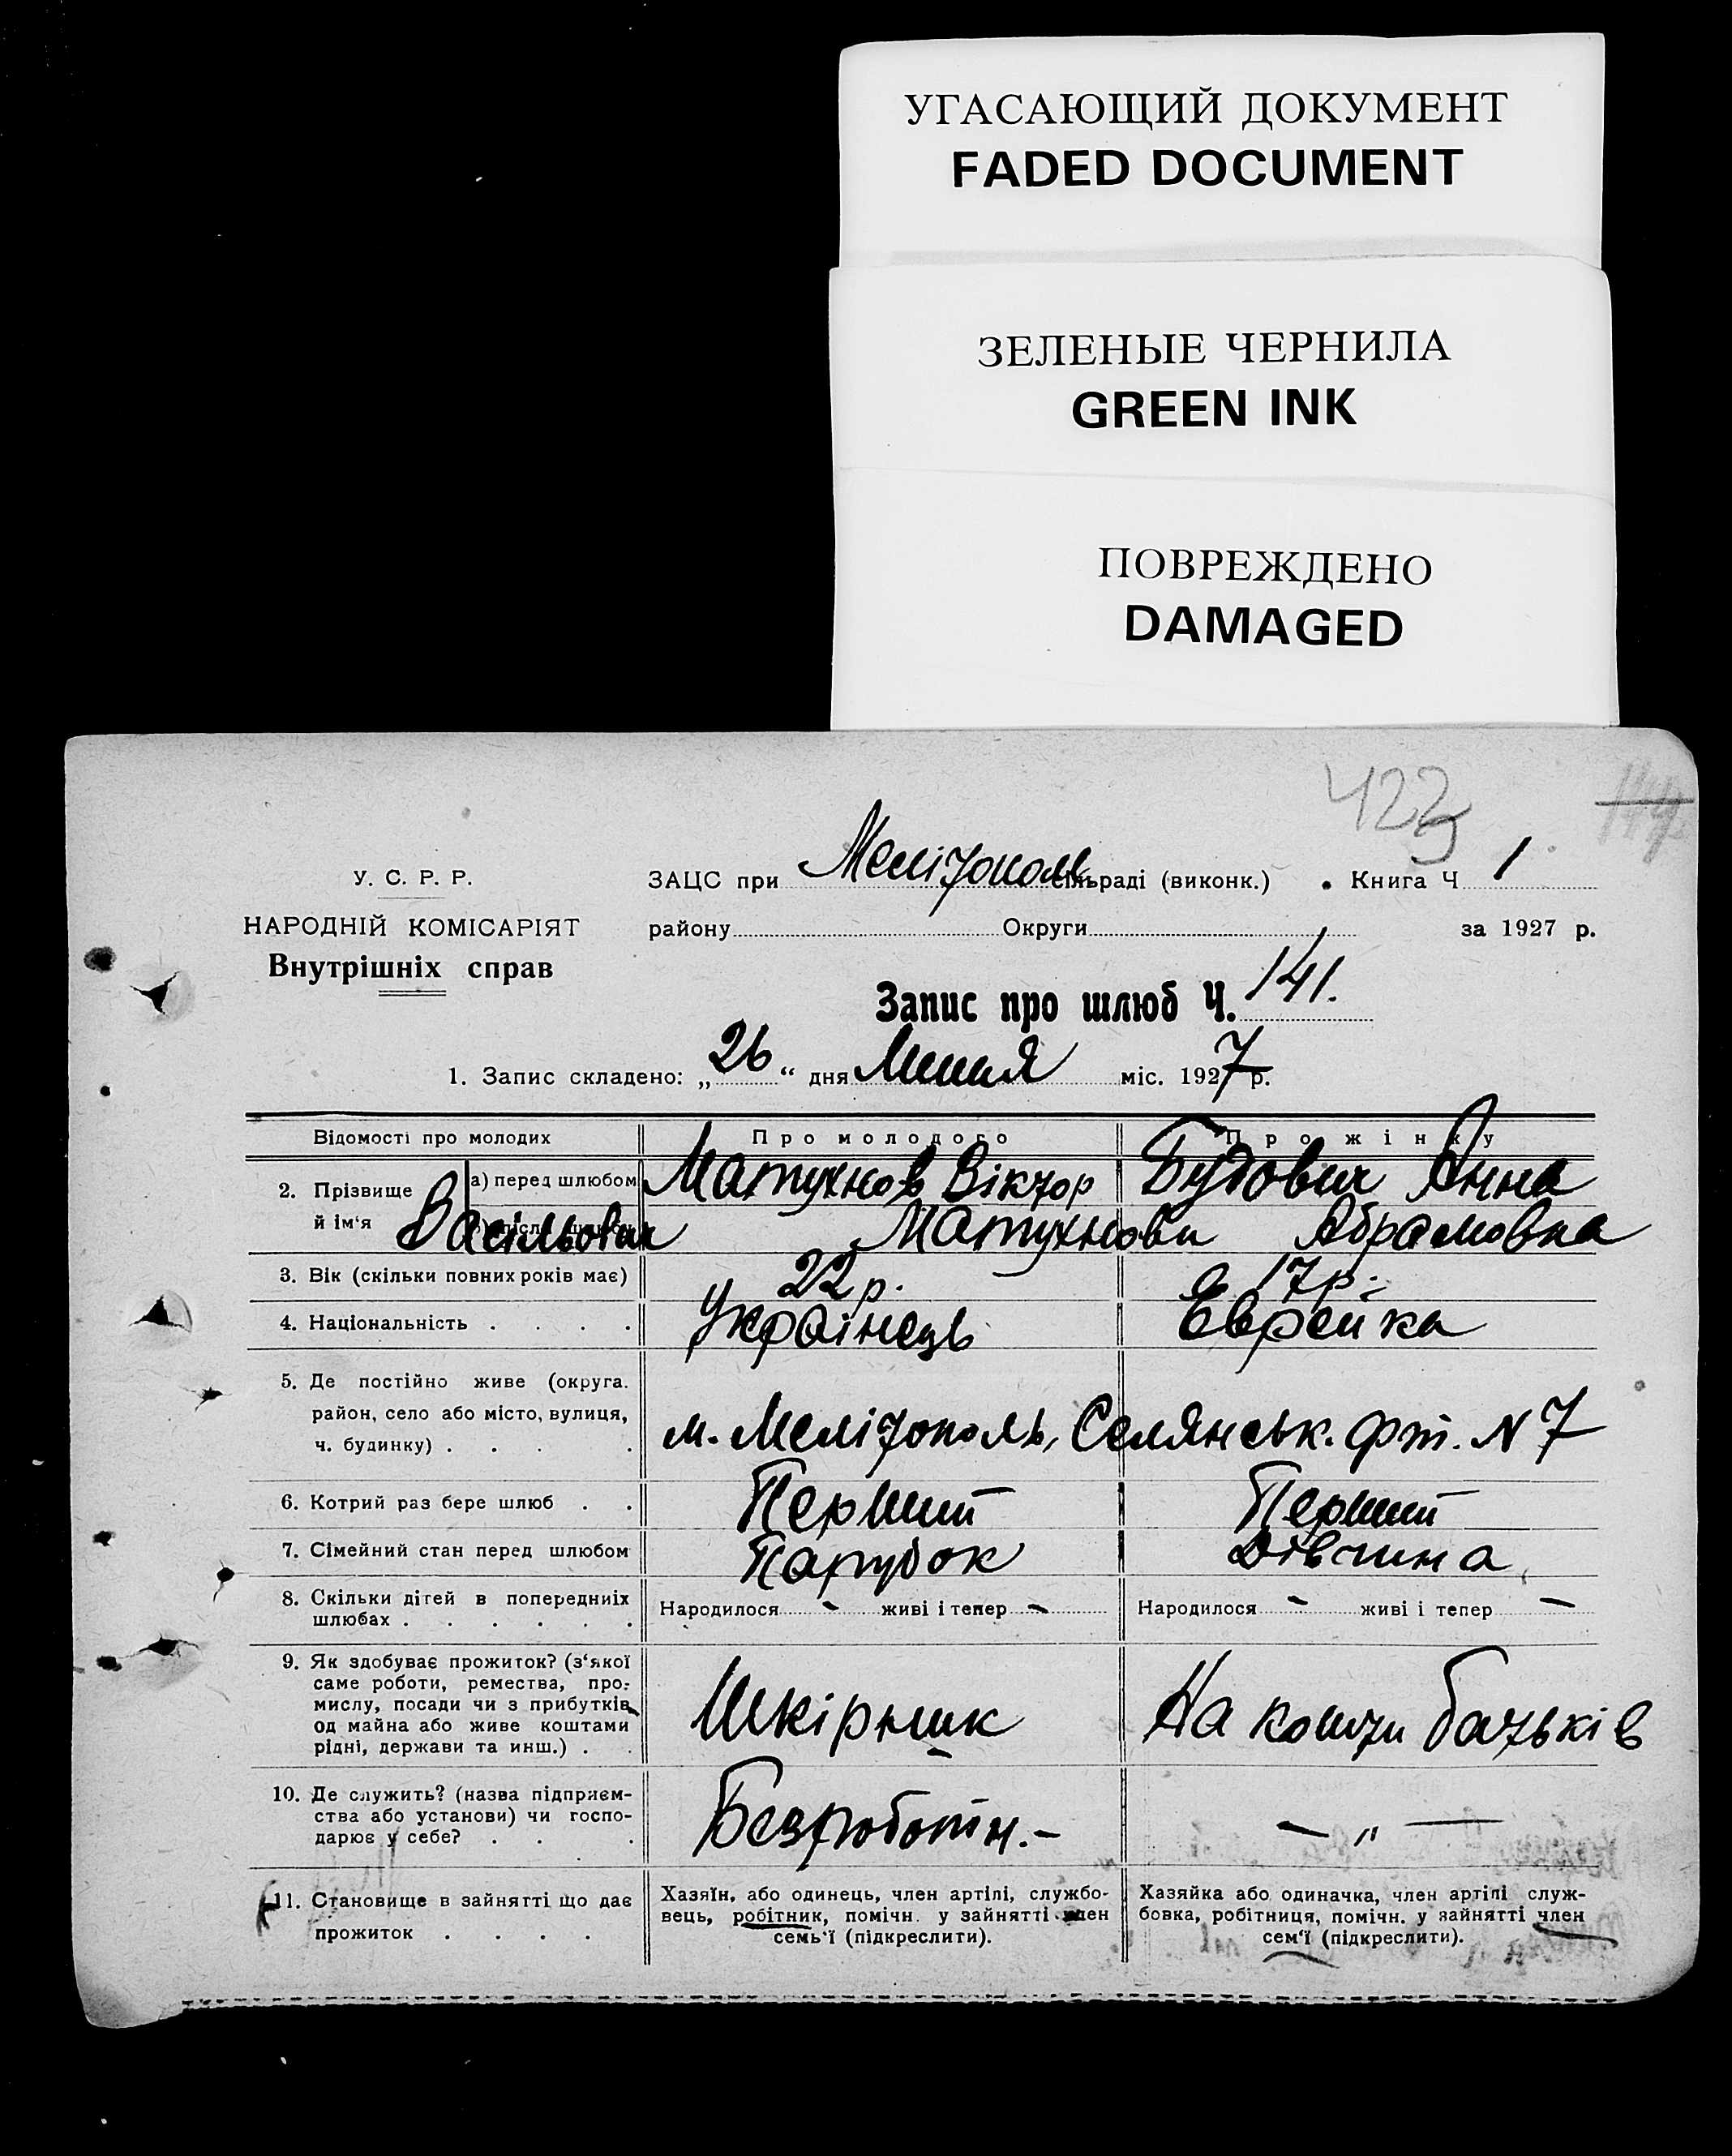 УГАСАЮЩИЙ ДОКУМЕНТ
FADED DOCUMENT
ЗЕЛЕНЫЕ ЧЕРНИЛА
GREEN INK
ПОВРЕЖДЕНО
DAMAGED
423
У. С. Р. Р.
НАРОДНІЙ КОМІСАРІЯТ
Внутрішніх справ
ЗАЦС при Мелітополь сільраді (виконк.) Книга Ч 1
району Округи за 1927 р.
Запис про шлюб Ч. 141.
1. Запис складено: „26“ дня Липня міс. 1927 р.
Відомості про молодих Про молодого Про жінку
2. Прізвище й ім'я
а) перед шлюбом Матухнов Віктор Будович Анна
після шлюбу Васільович Матухнови Абрамовна
3. Вік (скільки повних років має) 22 р. 17 р.
4. Національність . . . . Українець Еврейка
5. Де постійно живе (округа.
район, село або місто, вулиця,
ч. будинку) . . . . м. Мелітополь, Селянськ. N 7
6. Котрий раз бере шлюб . . Перший Перший
7. Сімейний стан перед шлюбом Парубок Дівчина
8. Скільки дітей в попередніх
шлюбах . . . . . . Народилося - живі і тепер - Народилося - живі і тепер -
9. Як здобуває прожиток? (з'якої
саме роботи, ремества, про-
мислу, посади чи з прибутків
од майна або живе коштами
рідні, держави та инш.) . . Шкірник На кошти батьків
10. Де служить? (назва підприєм-
ства або установи) чи госпо-
дарює у себе? . . . Безроботн.- — „ —
11. Становище в зайнятті що дає
прожиток . . . .
Хазяїн, або одинець, член артілі, службо-
вець, робітник, помічн. у зайнятті член
семь'ї (підкреслити).
Хазяйка або одиначка, член артілі служ-
бовка, робітниця, помічн. у зайнятті член
сем'ї (підкреслити).